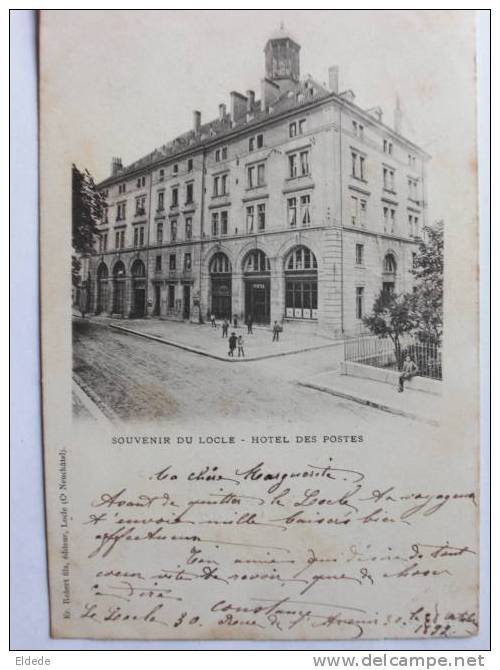 POSTES
SOUVENIR DU LOCLE - HOTEL DES POSTES
Ed. Robert fils, éditeur, Locle (Ct Neuchâtel).
Ma chère Marguerite.
Avant de quitter le Locle ta voyageuse
t'envoie mille baisers bien
affectueux
Ton amie qui désire de tout
coeur vite te revoir, que de choses
Constance
Le Locle 30. Rue de l'Avenir 30.
Eldede
www.delcampe.net